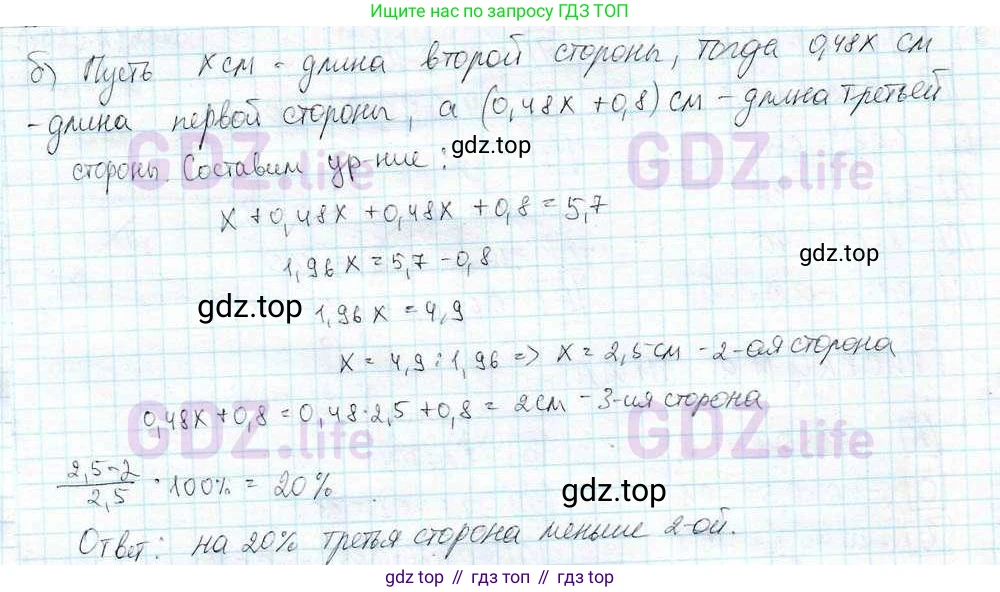 Ищите ответ по запросу ГДЗ ТОП
б) Пусть x см - длина второй стороны, тогда 0,48x см
- длина первой стороны, а (0,48x + 0,8) см - длина третьей
gdz.top
стороны. Составим ур-ние:
GDZ.life GDZ.life
x + 0,48x + 0,48x + 0,8 = 5,7
gdz.top
1,96x = 5,7 - 0,8
gdz.top
1,96x = 4,9
x = 4,9 : 1,96 => x = 2,5 см - 2-ая сторона
0,48x + 0,8 = 0,48·2,5 + 0,8 = 2 см - 3-ия сторона
GDZ.life GDZ.life
2,5-2 / 2,5 · 100% = 20%
gdz.top
Ответ: на 20% третья сторона меньше 2-ой.
gdz top // гдз топ // gdz top